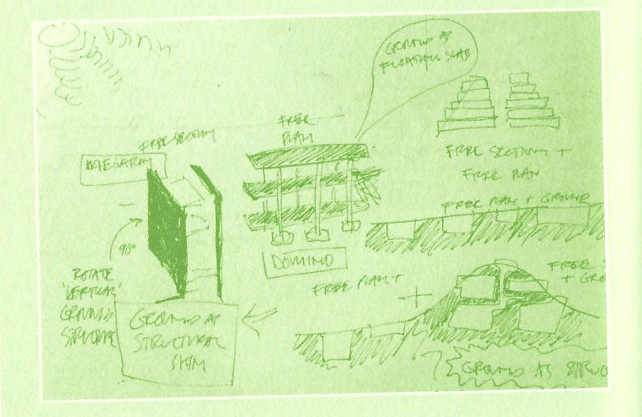 GROUND AS
FLOATING SLAB
FREE
PLAN
FREE SECTION
MEGARON
FREE SECTION +
FREE PLAN
FREE PLAN + GROUND
90°
DOMINO
ROTATE
'VERTICAL'
GROUND
STRUCTURE
FREE PLAN +
FREE
+ GRO
GROUND AS
STRUCTURAL
GROUND AS STRUC